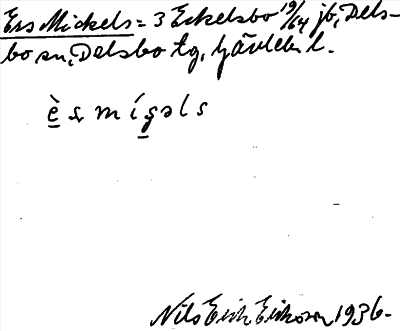 Ers Mickels = 3 Eckelsbo 19/64 jb, Dels-
bo sn, Delsbo tg, Gävleb l.
è ʂ m í g ə l s
Nils Erik Eriksson 1936.